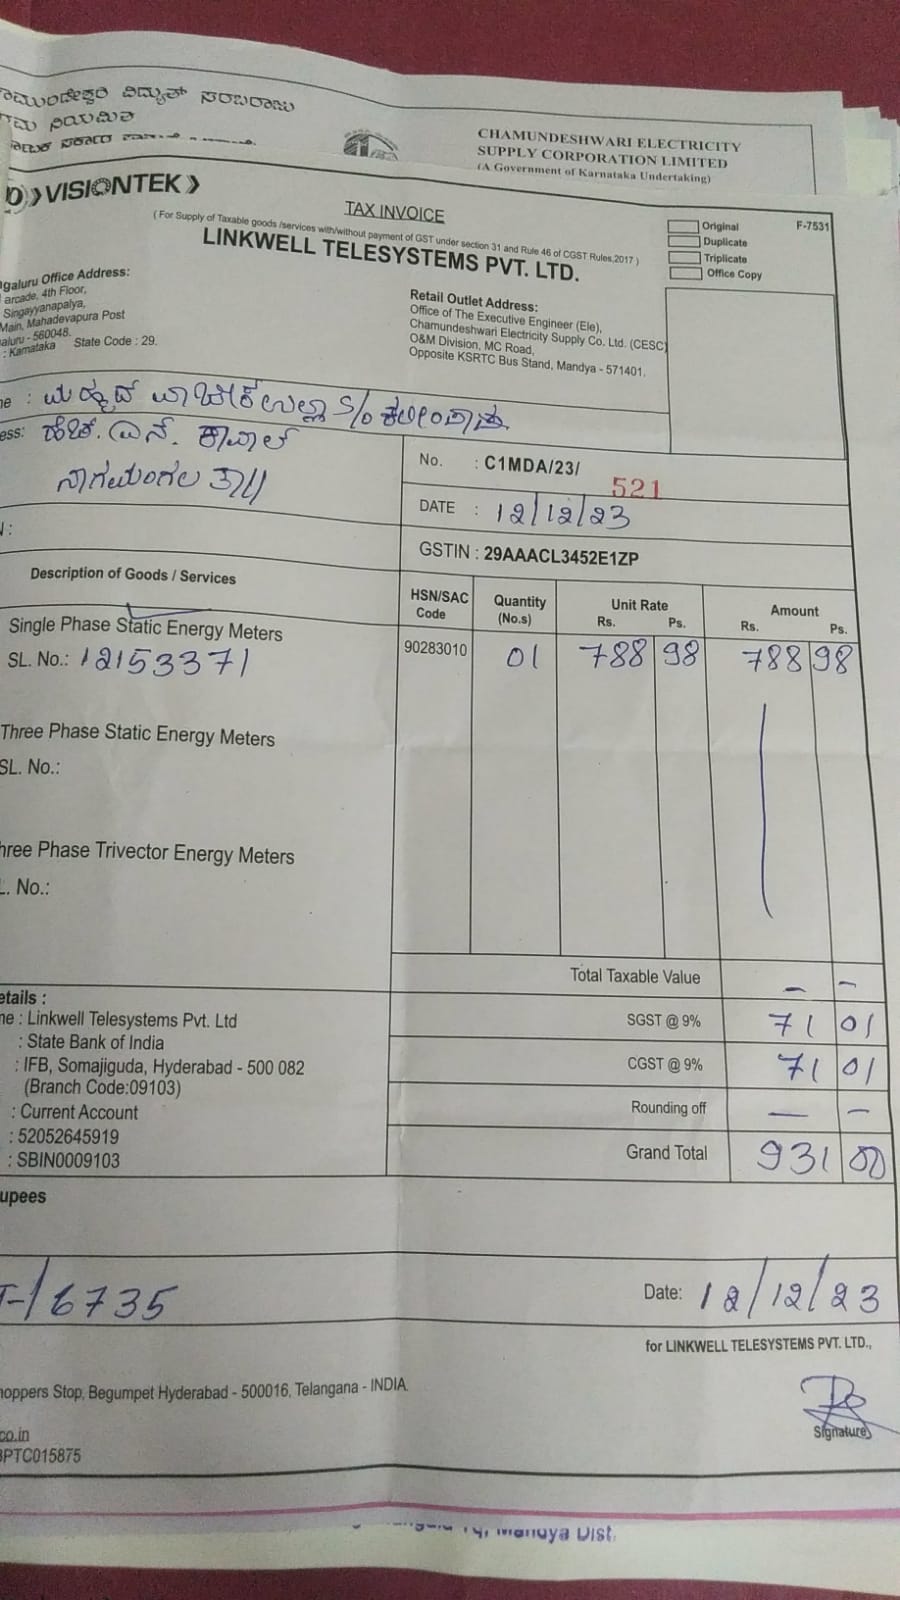 ವಿದ್ಯುತ್ ಸರಬರಾಜು
CHAMUNDESHWARI ELECTRICITY
SUPPLY CORPORATION LIMITED
(A Government of Karnataka Undertaking)
VISIONTEK
TAX INVOICE
(For Supply of Taxable goods /services with/without payment of GST under section 31 and Rule 46 of CGST Rules,2017 )
LINKWELL TELESYSTEMS PVT. LTD.
Original
Duplicate
Triplicate
Office Copy
F-7531
galuru Office Address:
arcade, 4th Floor,
Singayyanapalya,
Main, Mahadevapura Post
aluru - 560048.
: Karnataka State Code : 29.
Retail Outlet Address:
Office of The Executive Engineer (Ele),
Chamundeshwari Electricity Supply Co. Ltd. (CESC)
O&M Division, MC Road,
Opposite KSRTC Bus Stand, Mandya - 571401.
me : S/o
ess: ಹೆಚ್. ಎನ್. ಕಾವಲ್
ನಾಗಮಂಗಲ ತಾ//
No. : C1MDA/23/ 521
DATE : 12/12/23
GSTIN : 29AAACL3452E1ZP
Description of Goods / Services
HSN/SAC Code
Quantity (No.s)
Unit Rate Rs. Ps.
Amount Rs. Ps.
Single Phase Static Energy Meters
SL. No.: 12153371
90283010 01 788 98 788 98
Three Phase Static Energy Meters
SL. No.:
hree Phase Trivector Energy Meters
L. No.:
Total Taxable Value - -
SGST @ 9% 71 01
CGST @ 9% 71 01
Rounding off - -
Grand Total 931 00
etails :
me : Linkwell Telesystems Pvt. Ltd
: State Bank of India
: IFB, Somajiguda, Hyderabad - 500 082
(Branch Code:09103)
: Current Account
: 52052645919
: SBIN0009103
upees
6735
Date: 12/12/23
for LINKWELL TELESYSTEMS PVT. LTD.,
hoppers Stop, Begumpet Hyderabad - 500016, Telangana - INDIA.
Signature
co.in
BPTC015875
Mandya Dist.